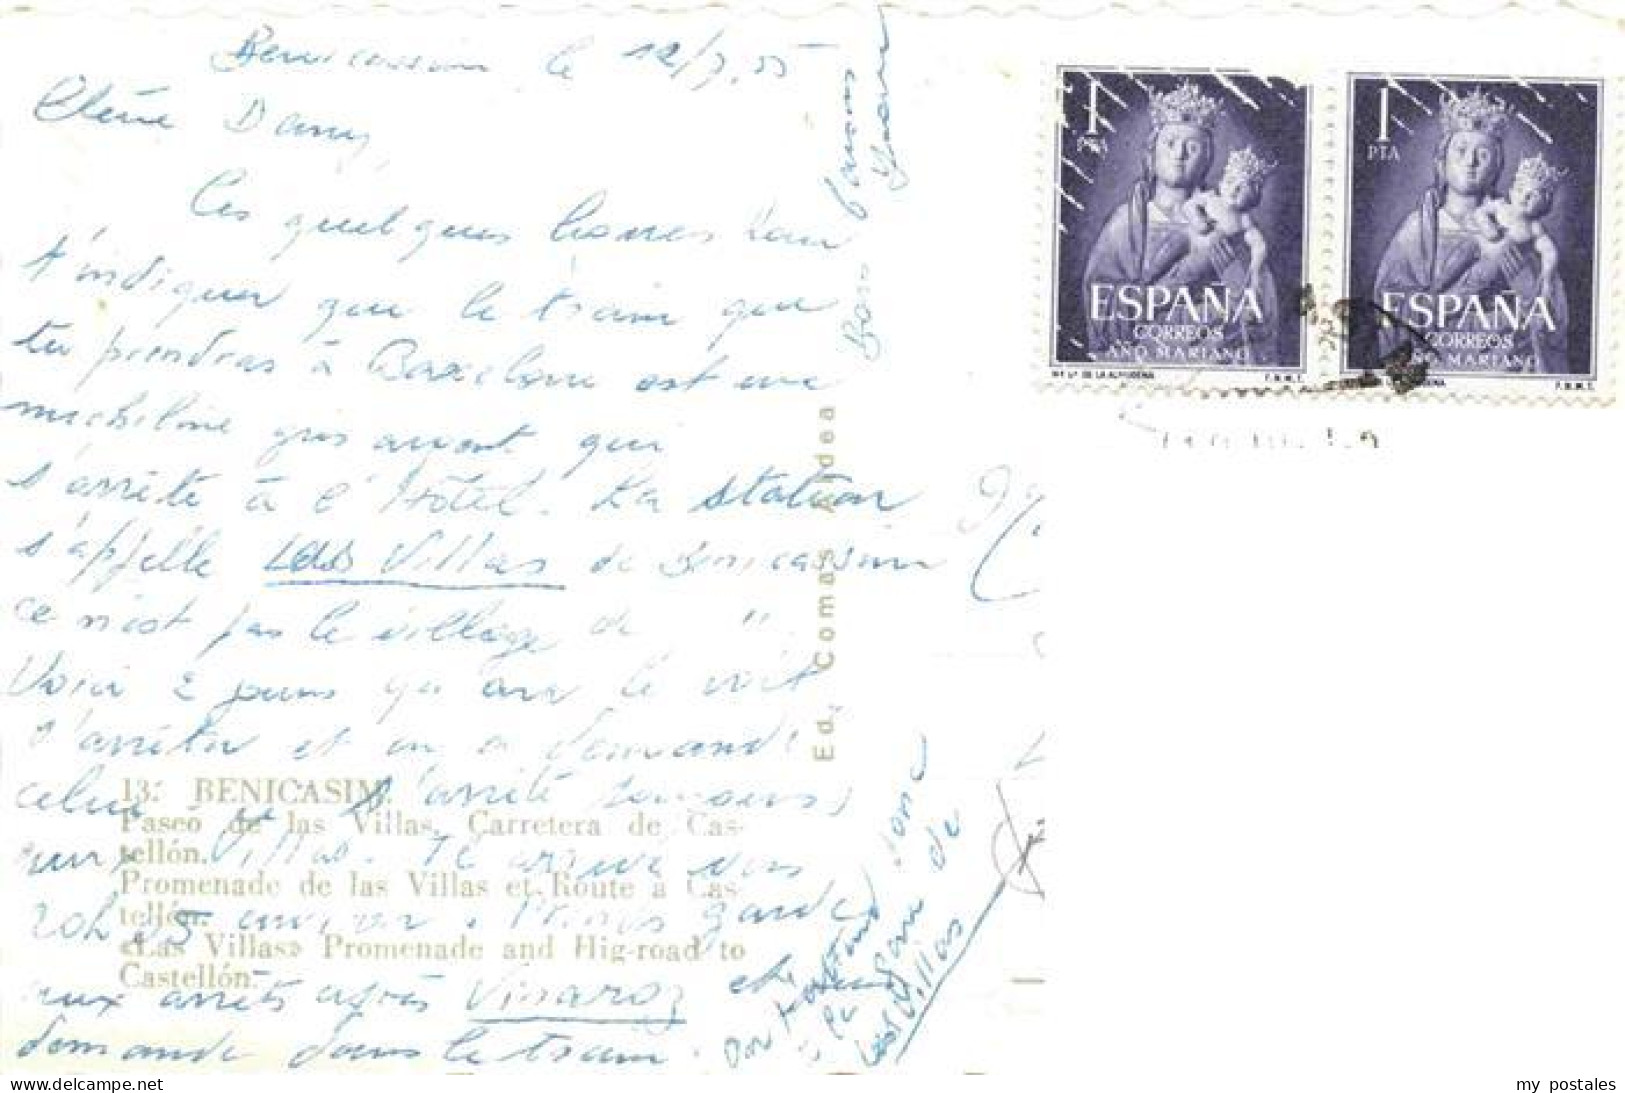 Benicassim le 12/7.55
Chère Dany,
Ces quelques lignes pour
t'indiquer que le train que
tu prendras à Barcelone est une
micheline gris avant qui
s'arrête à l'Hôtel. La station
s'appelle Las Villas de Benicassim
ce n'est pas le village de "
Voici 2 jours qu' on le voit
s'arrêter et on a demandé
celui s'arrête toujours
aux Villas. Il arrive vers
20h,15 environ. Prends garde
aux arrêts après Vinaroz et
demande dans le train.
la gare de
Las Villas
Bons baisers
13. BENICASIM.
Paseo de las Villas. Carretera de Cas-
tellón.
Promenade de las Villas et Route a Cas-
tellón.
«Las Villas» Promenade and Hig-road to
Castellón.
Ed. Comas Aldea
1
PTA
ESPAÑA
CORREOS
AÑO MARIANO
Nª Sª DE LA ALMUDENA F.N.M.T.
1
PTA
ESPAÑA
CORREOS
AÑO MARIANO
F.N.M.T.
my postales